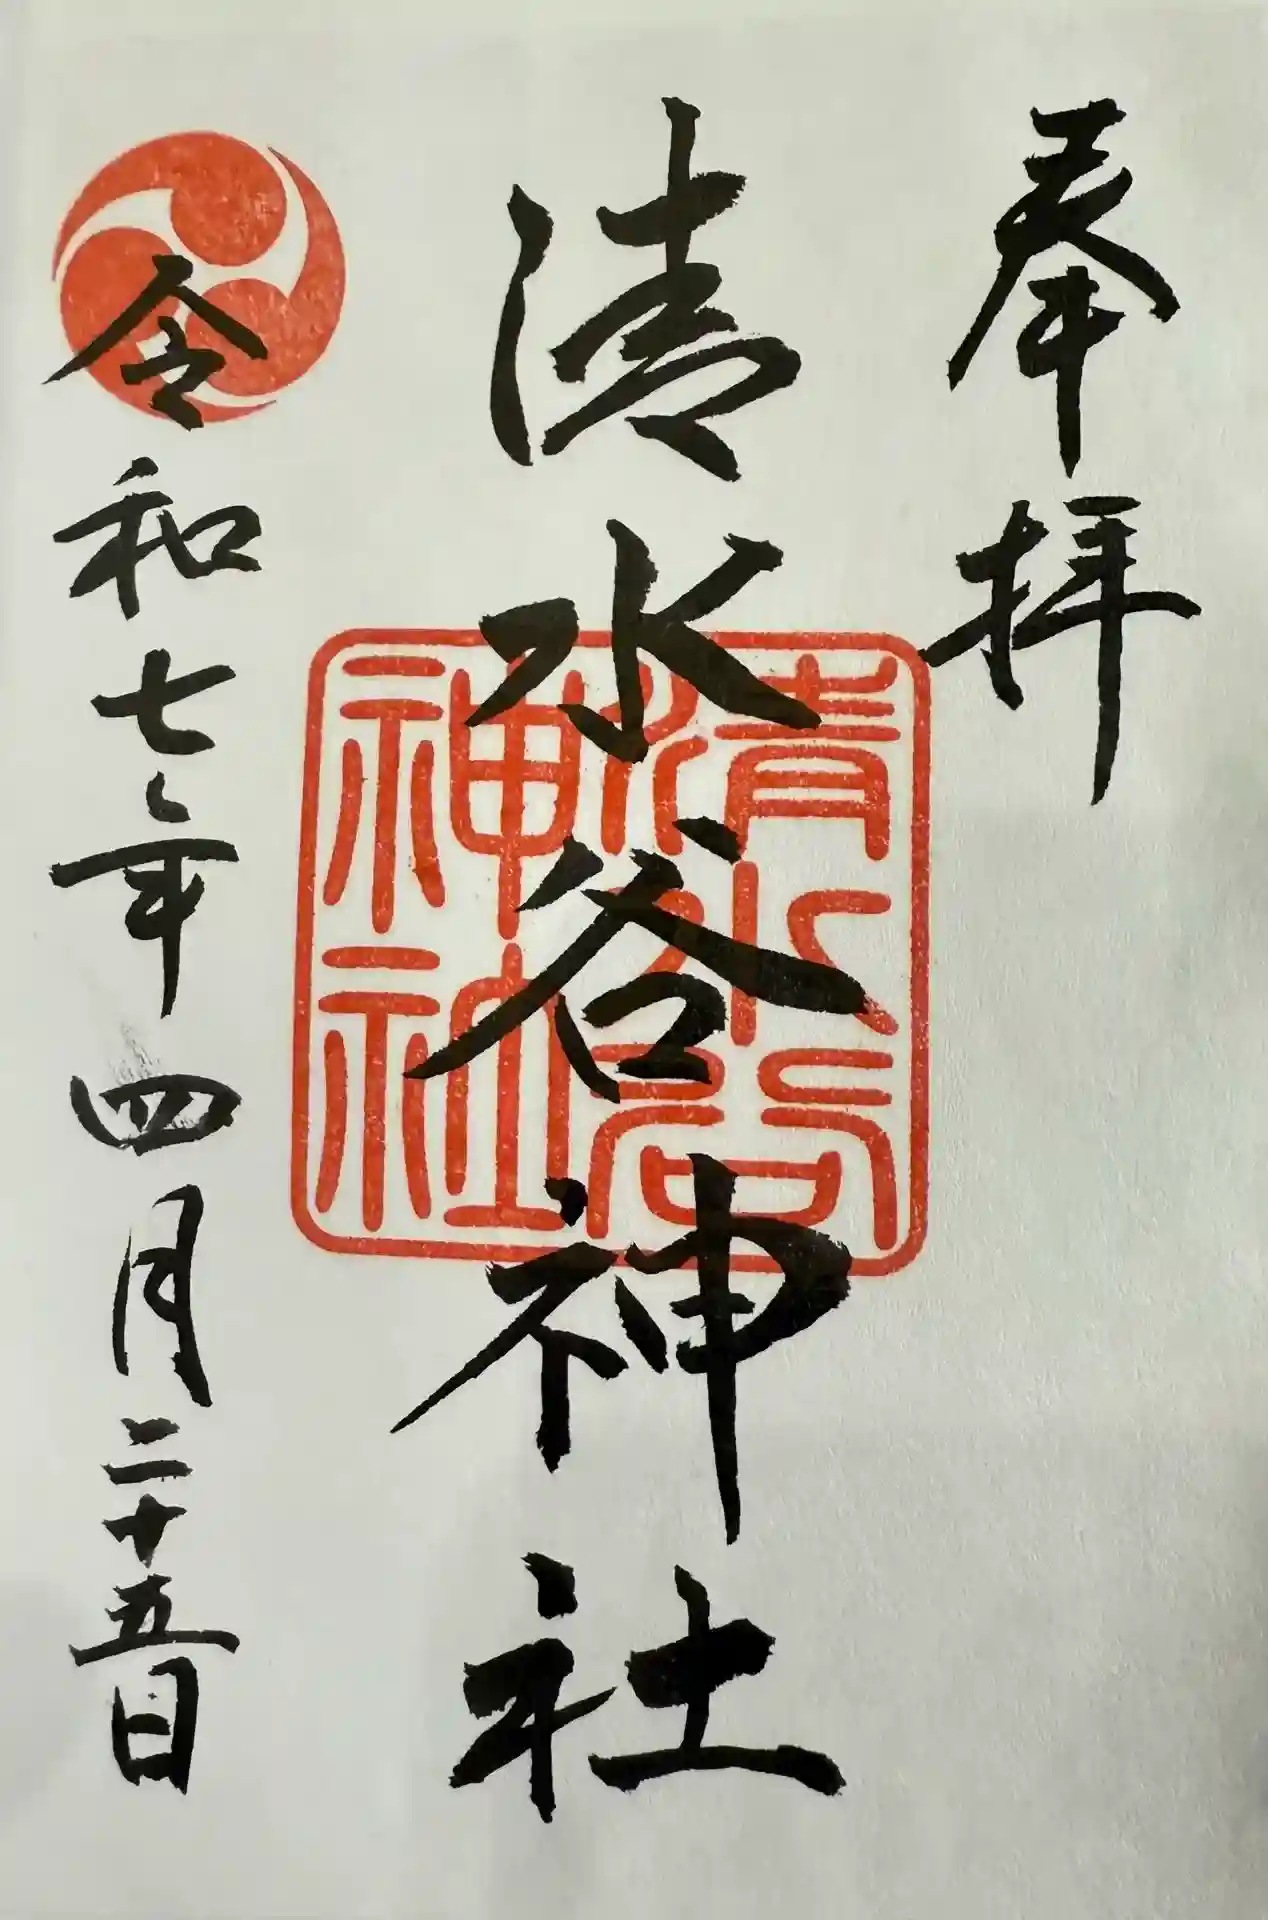 奉拝
清水谷神社
清水谷神社
令和七年四月二十五日